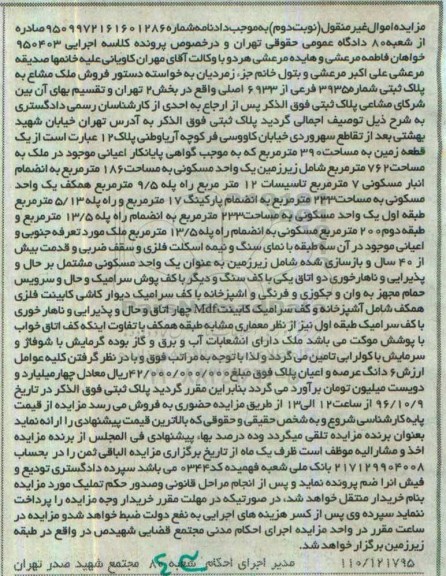 مزایده اموال غیر منقول (نوبت دوم) به موجب دادنامه شماره ۹۵۰۹۹۷۲۱۶۱۶۰۱۲۸۶ صادره
از شعبه ۸۰ دادگاه عمومی حقوقی تهران و درخصوص پرونده کلاسه اجرایی ۹۵۰۴۰۳
خواهان فاطمه مرعشی و هایده مرعشی هر دو با وکالت آقای مهران کاویانی علیه خانمها صدیقه
مرعشی علی اکبر مرعشی و بتول خانم جز، زمردیان به خواسته دستور فروش ملک مشاع به
پلاک ثبتی شماره ۳۹۳۵ فرعی از ۶۹۳۳ اصلی واقع در بخش ۲ تهران و تقسیم بهای آن بین
شرکای مشاعی پلاک ثبتی فوق الذکر پس از ارجاع به احدی از کارشناسان رسمی دادگستری
به شرح ذیل توصیف اجمالی گردید پلاک ثبتی فوق الذکر به آدرس تهران خیابان شهید
بهشتی بعد از تقاطع سهروردی خیابان کاووسی فر کوچه آریاوطنی پلاک ۱۲ عبارت است از یک
قطعه زمین به مساحت ۳۹۰ مترمربع که به موجب گواهی پایانکار اعیانی موجود در ملک به
مساحت ۷۶۲ مترمربع شامل زیرزمین یک واحد مسکونی به مساحت ۱۸۶ مترمربع به انضمام
انبار مسکونی ۷ مترمربع تاسیسات ۱۲ متر مربع راه پله ۹/۵ مترمربع همکف یک واحد
مسکونی به مساحت ۲۳۳ مترمربع به انضمام پارکینگ ۱۷ مترمربع و راه پله ۵/۱۳ مترمربع
طبقه اول یک واحد مسکونی به مساحت ۲۳۳ مترمربع به انضمام راه پله ۱۳/۵ مترمربع و
طبقه دوم ۲۰۰ مترمربع مسکونی به انضمام راه پله ۱۳/۵ مترمربع ملک مورد تعرفه جنوبی و
اعیانی موجود در آن سه طبقه با نمای سنگ و نیمه اسکلت فلزی و سقف ضربی و قدمت بیش
از ۴۰ سال و بازسازی شده شامل زیرزمین به عنوان یک واحد مسکونی مشتمل بر حال و
پذیرایی و ناهارخوری دو اتاق یکی با کف سنگ و دیگر با کف پوش سرامیک و حال و سرویس
حمام مجهز به وان و جکوزی و فرنگی و اشپزخانه با کف سرامیک دیوار کاشی کابینت فلزی
همکف شامل آشپزخانه و کف سرامیک کابینت Mdf چهار اتاق و حال و پذیرایی و ناهار خوری
با کف سرامیک طبقه اول نیز از نظر معماری مشابه طبقه همکف با تفاوت اینکه کف اتاق خواب
با پوشش موکت می باشد ملک دارای انشعابات آب و برق و گاز بوده گرمایش با شوفاژ و
سرمایش با کولر ابی تامین می گردد و لذا با توجه به مراتب فوق و با در نظر گرفتن کلیه عوامل
ارزش ۶ دانگ عرصه و اعیان پلاک فوق مبلغ ۴۲/۰۰۰/۰۰۰/۰۰۰ ریال معادل چهارمیلیارد و
دویست میلیون تومان برآورد می گردد بنابراین مقرر گردید پلاک ثبتی فوق الذکر در تاریخ
۹۶/۱۰/۹ از ساعت ۱۲ الی ۱۳ از طریق مزایده حضوری به فروش می رسد مزایده از قیمت
پایه کارشناسی شروع و به شخص حقیقی و حقوقی که بالاترین قیمت پیشنهادی را ارائه نماید
بعنوان برنده مزایده تلقی میگردد وده درصد بها، پیشنهادی فی المجلس از برنده مزایده
اخذ و مشارالیه موظف است ظرف یک ماه از تاریخ برگزاری مزایده الباقی ثمن را در بحساب
۲۱۷۱۲۹۹۰۴۰۰۸ بانک ملی شعبه فهمیده کد ۰۳۴۴ می باشد سپرده دادگستری تودیع و
فیش انرا ضم پرونده نماید و پس از انجام مراحل قانونی و صدور حکم تملیک مورد مزایده
بنام خریدار منتقل خواهد شد، در صورتیکه در مهلت مقرر خریدار وجه مزایده را پرداخت
ننماید سپرده وی پس از کسر هزینه های اجرایی به نفع دولت ضبط خواهد شد و مزایده در
ساعت مقرر در واحد مزایده اجرای احکام مدنی مجتمع قضایی شهیدصدر واقع در طبقه
زیرزمین برگزار خواهد شد.
۱۱۰/۱۲۱۷۹۵ مدیر اجرای احکام شعبه ۸ مجتمع شهید صدر تهران